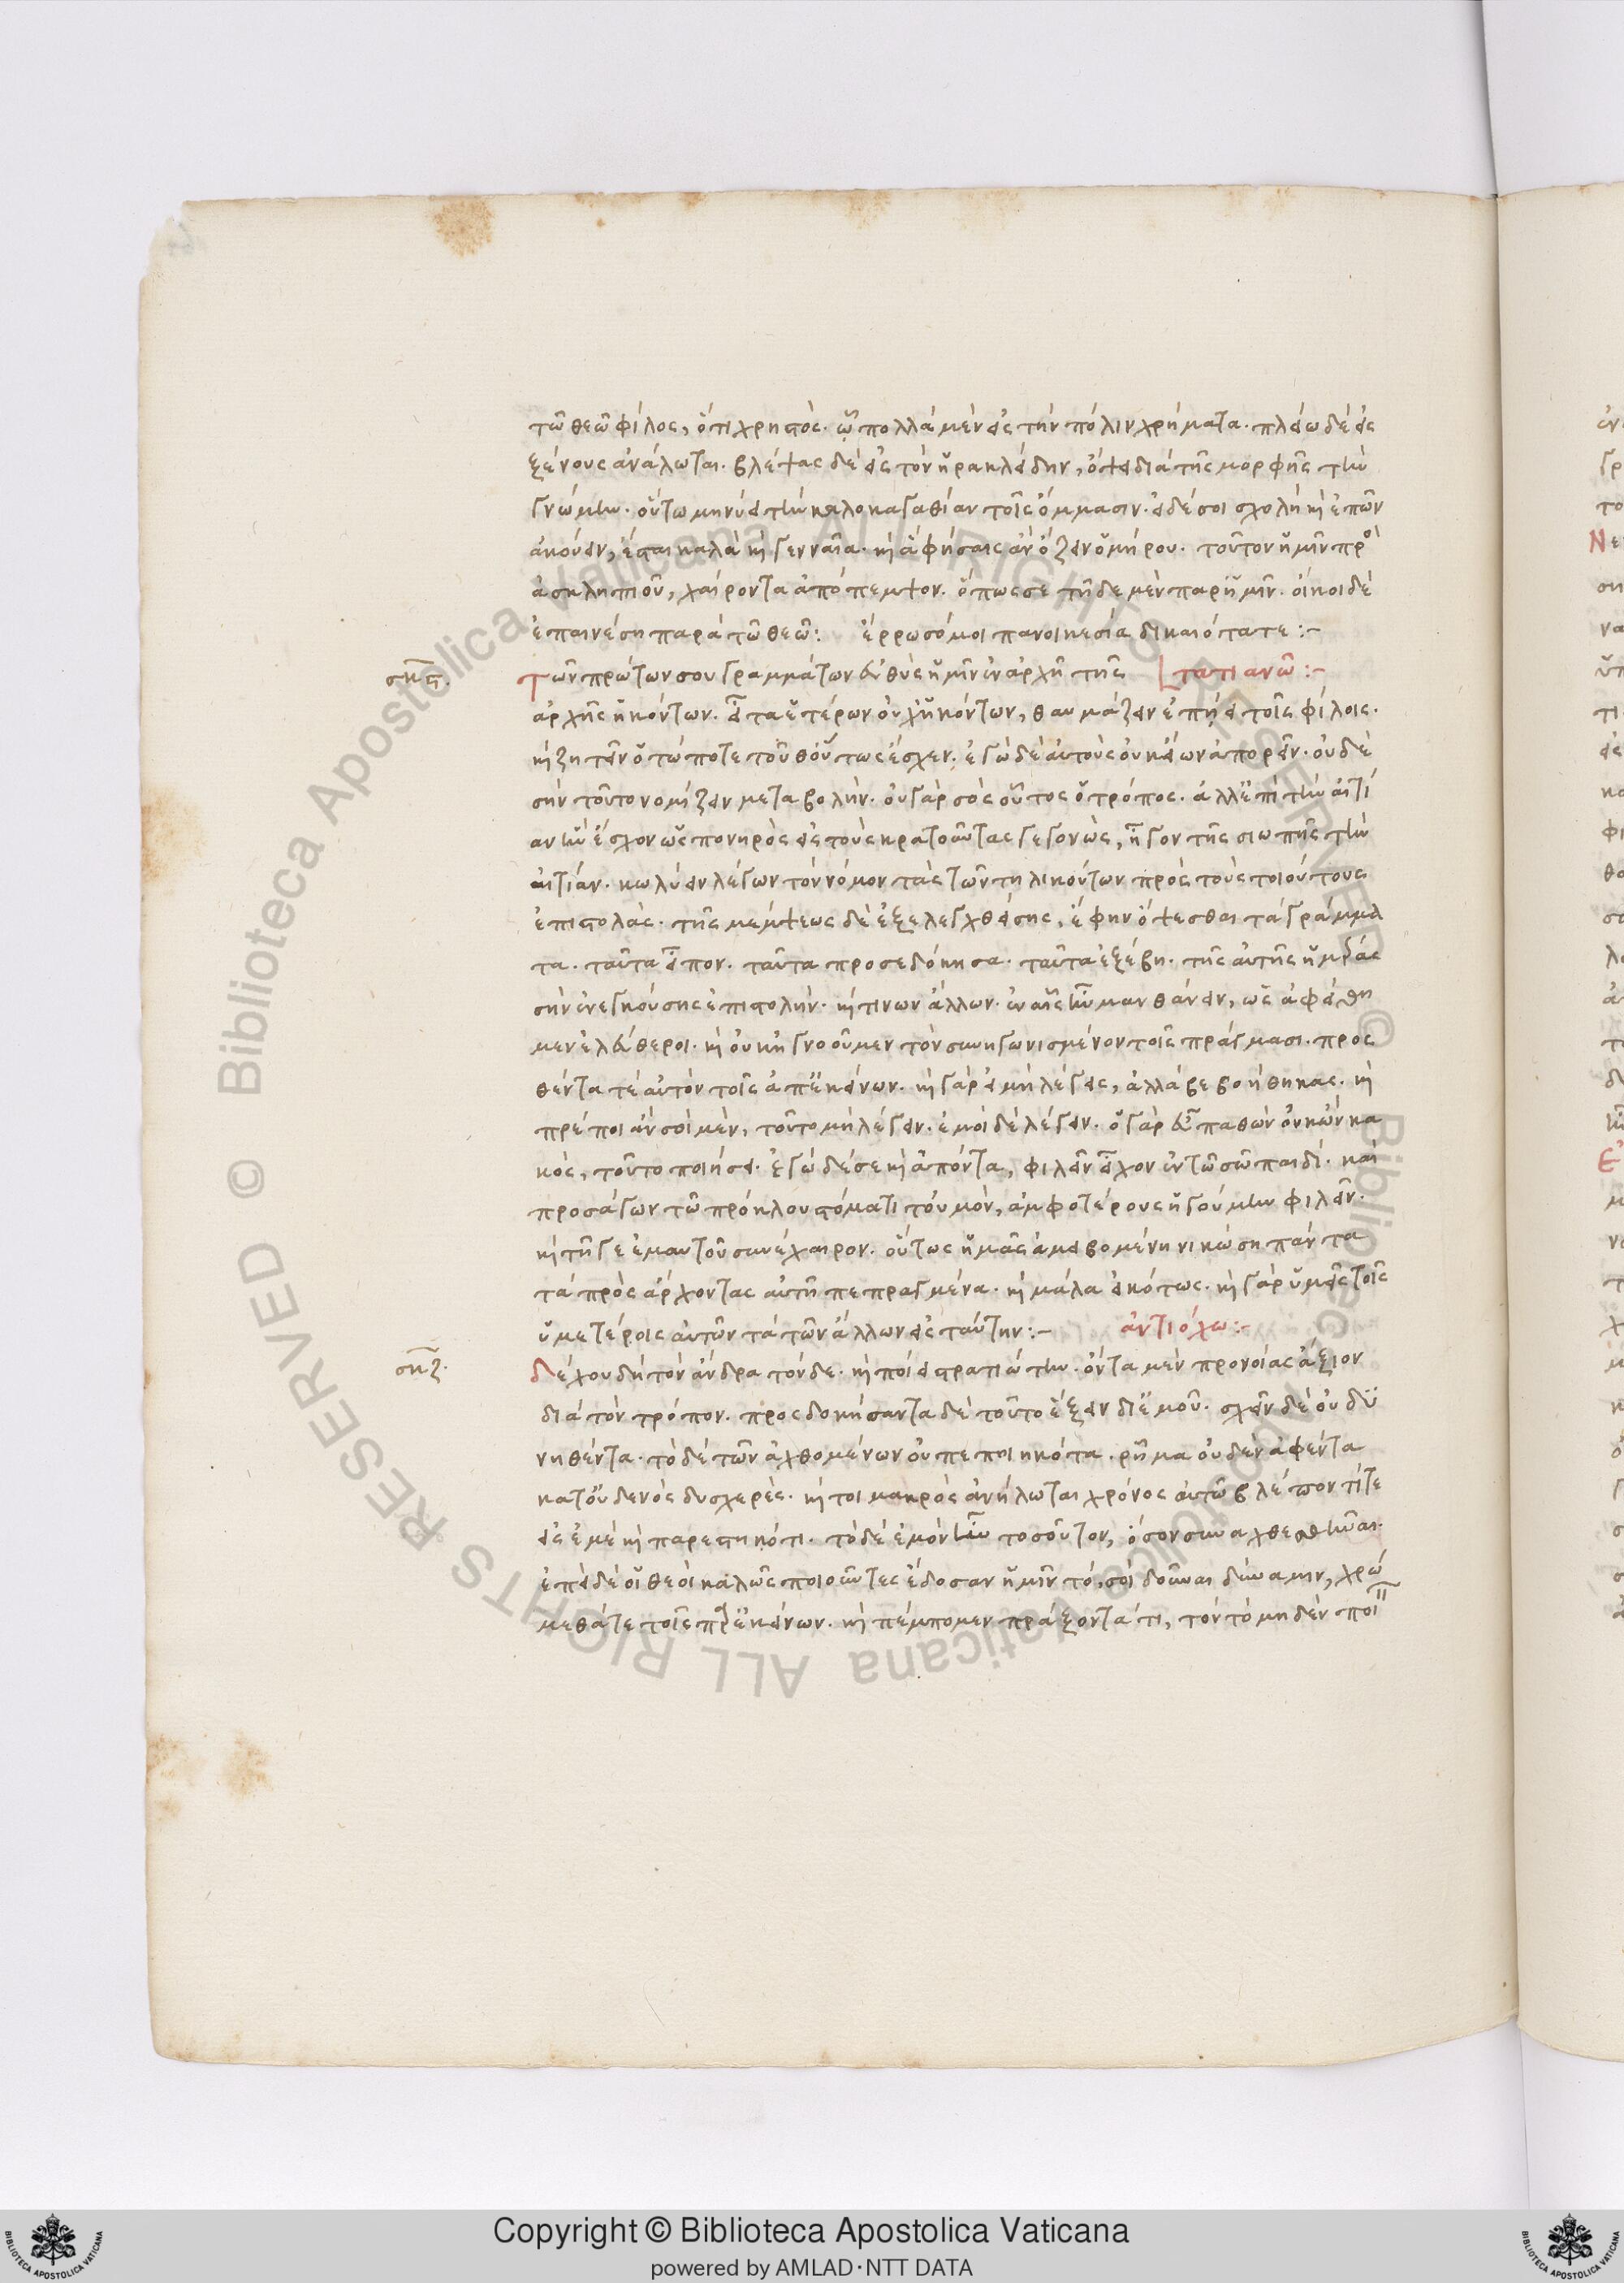 τῶ θεῶ φίλος, ὅτι χρηστός. ᾧ πολλὰ μὲν εἰς τὴν πόλιν χρήματα. πλείω δὲ εἰς
ξένους ἀνάλωται. βλέψας δὲ εἰς τὸν ἡρακλείδην, ὄψει διὰ τῆς μορφῆς τὴν
γνώμην. οὕτω μηνύει τὴν καλοκαγαθίαν τοῖς ὄμμασιν. εἰ δέ σοι σχολὴ καὶ ἐπῶν
ἀκούειν, ἔσται καλὰ καὶ γενναῖα. καὶ ἀφήσαις ἂν ὄζειν ὁμήρου. τοῦτον ἡμῖν πρὸς
ἀσκληπιοῦ, χαίροντα ἀπόπεμψον. ὅπως σε τῇδε μὲν παρ' ἡμῖν. οἴκοι δὲ
ἐπαινέσῃ παρὰ τῶ θεῶ: ἔρρωσό μοι πανοικεσία δικαιότατε:-
σης. Τῶν πρώτων σου γραμμάτων εὐθὺς ἡμῖν ἐν ἀρχῇ τῆς τατιανῶ:-
ἀρχῆς ἡκόντων. εἶτα ἑτέρων οὐχ ἡκόντων, θαυμάζειν ἐπῄει τοῖς φίλοις.
καὶ ζητεῖν ὅτω ποτε τοῦθ' οὕτως ἔσχεν. ἐγὼ δὲ αὐτοὺς οὐκ εἴων ἀπορεῖν. οὐδὲ
σὴν τοῦτο νομίζειν μεταβολήν. οὐ γὰρ σὸς οὗτος ὁ τρόπος. ἀλλ' ἐπὶ τὴν αἰτί
αν ἣν ἔσχον ὡς πονηρὸς εἰς τοὺς κρατοῦντας γεγονὼς, ἦγον τῆς σιωπῆς τὴν
αἰτίαν. κωλύειν λέγων τὸν νόμον τὰς τῶν τηλικούτων πρὸς τοὺς τοιούτους
ἐπιστολάς. τῆς μέμψεως δὲ ἐξελεγχθείσης, ἔφην ὄψεσθαι τὰ γράμμα
τα. ταῦτα εἶπον. ταῦτα προσεδόκησα. ταῦτα ἐξέβη. τῆς αὐτῆς ἡμέρας
σὴν ἐνεγκούσης ἐπιστολήν. καί τινων ἄλλων. ἐν αἷς ἦν μανθάνειν, ὡς ἀφείθη
μεν ἐλεύθεροι. καὶ οὐκ ἠγνοοῦμεν τὸν συνηγωνισμένον τοῖς πράγμασι. προσ
θέντα τὲ αὑτὸν τοῖς ἀπ' ἐκείνων. καὶ γὰρ εἰ μὴ λέγεις, ἀλλὰ βεβοήθηκας. καὶ
πρέποι ἂν σοὶ μὲν, τοῦτο μὴ λέγειν. ἐμοὶ δὲ λέγειν. ὁ γὰρ εὖ παθὼν οὐκ ὢν κα
κὸς, τοῦτο ποιήσει. ἐγὼ δέ σε καὶ ἀπόντα, φιλεῖν εἶχον ἐν τῶ σῶ παιδί. καὶ
προσάγων τῶ πρόκλου στόματι τοὐμὸν, ἀμφοτέρους ἡγούμην φιλεῖν.
καὶ τῇ γε ἐμαυτοῦ συνέχαιρον. οὕτως ἡμᾶς ἀμειβομένη νικώση πάντα
τὰ πρὸς ἄρχοντας αὐτῇ πεπραγμένα. καὶ μάλα εἰκότως. καὶ γὰρ ὑμεῖς τοῖς
ὑμετέροις αὐτῶν τὰ τῶν ἄλλων εἰς ταύτην:- ἀντιόχω:-
σηζ. Δέχου δὴ τὸν ἄνδρα τόνδε. καὶ ποίει στρατιώτην. ὄντα μὲν προνοίας ἄξιον
διὰ τὸν τρόπον. προσδοκήσαντα δὲ τοῦτο ἕξειν δι' ἐμοῦ. σχεῖν δὲ οὐ δυ
νηθέντα. τὸ δὲ τῶν ἀχθομένων οὐ πεποιηκότα. ῥῆμα οὐδὲν ἀφέντα
κατ' οὐδενὸς δυσχερές. καίτοι μακρὸς ἀνήλωται χρόνος αὐτῶ βλέποντί τε
εἰς ἐμὲ καὶ παρεστηκότι. τὸ δὲ ἐμὸν ἦν τοσοῦτον, ὅσον συναχθεσθῆναι.
ἐπεὶ δὲ οἱ θεοὶ καλῶς ποιοῦντες ἔδοσαν ἡμῖν τό, σοὶ δοῦναι δύναμιν, χρώ
μεθά τε τοῖς παρ' ἐκείνων. καὶ πέμπομεν πράξοντά τι, τὸν τὸ μηδὲν ποι